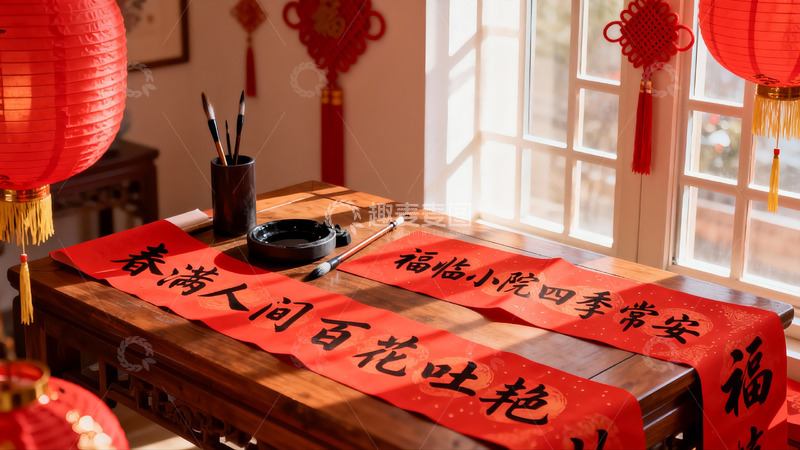 春满人间百花吐艳
福临小院四季常安
福